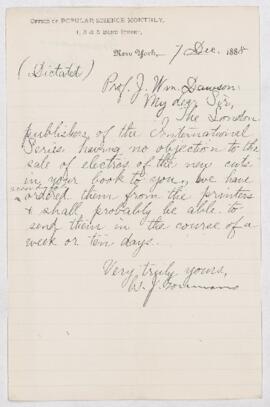 OFFICE OF POPULAR SCIENCE MONTHLY,
1, 3 & 5 BOND STREET,
New York, 7 Dec. 1888
(Dictated)
Prof. J. Wm. Dawson:
My dear Sir,
The London
publishers of the International
Series having no objection to the
sale of electros of the new cuts
in your book to you, we have
ordered them from the printers
& shall probably be able to
send them in the course of a
week or ten days.
Very truly yours,
W. J. Youmans